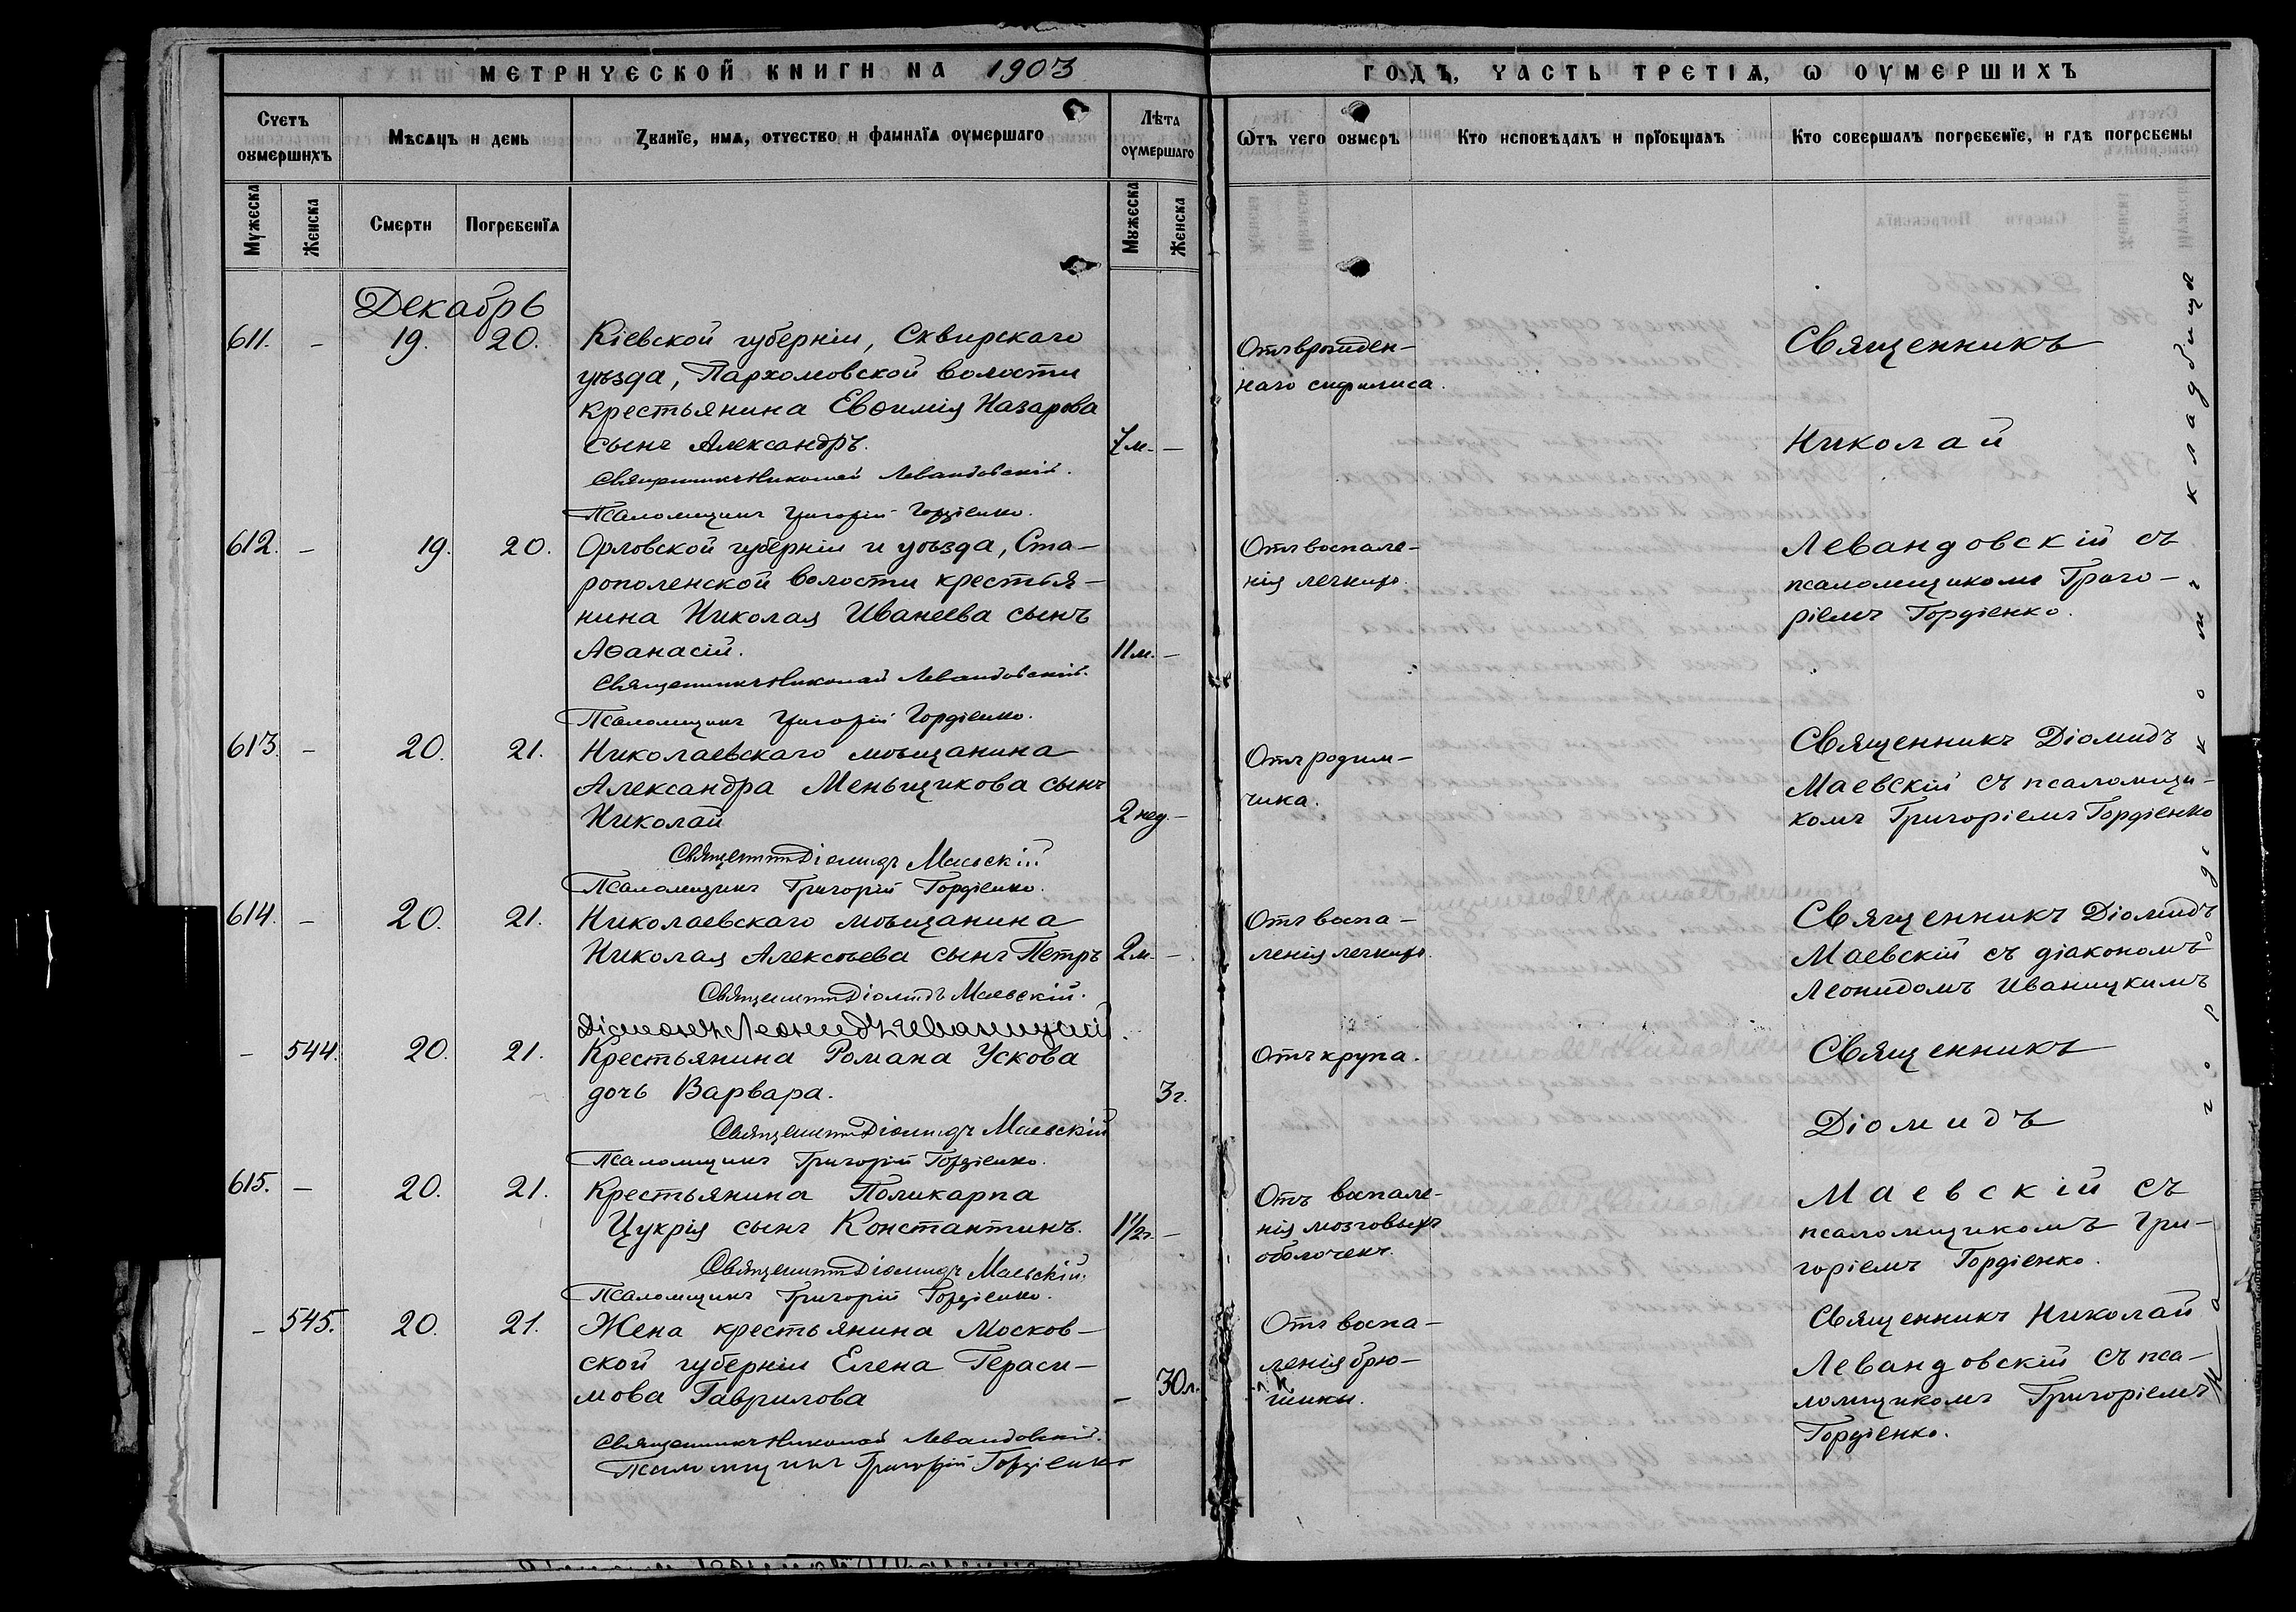 МЕТРИЧЕСКОЙ КНИГИ НА 1903
ГОДЪ, ЧАСТЬ ТРЕТІѦ, Ѡ ОУМЕРШИХЪ
Счетъ оумершихъ
Мѣсѧцъ и день
Званїе, имѧ, отчество и фамилїѧ оумершаго
Лѣта оумершаго
Ѿтъ чего оумеръ
Кто исповѣдалъ и прїобщалъ
Кто совершалъ погребенїе, и гдѣ погребены
Мужеска
Женска
Смерти
Погребенїѧ
Мужеска
Женска
Декабрь
611. – 19. 20. Кіевской губерніи, Сквирскаго
уѣзда, Пархомовской волости
крестьянина Евѳимія Назарова
сынъ Александръ. 7 м. –
Священникъ Николай Левандовскій.
Псаломщикъ Григорій Гордіенко.
Отъ врожден-
наго сифилиса.
Священникъ
Николай
612. – 19. 20. Орловской губерніи и уѣзда, Ста-
рополенской волости крестья-
нина Николая Иванеева сынъ
Аѳанасій. 11 м. –
Священникъ Николай Левандовскій.
Псаломщикъ Григорій Гордіенко.
Отъ воспале-
нія легкихъ.
Левандовскій съ
псаломщикомъ Григо-
ріемъ Гордіенко.
613. – 20. 21. Николаевскаго мѣщанина
Александра Меньщикова сынъ
Николай 2 нед. –
Священникъ Діомидъ Маевскій
Псаломщикъ Григорій Гордіенко.
Отъ родим-
чика.
Священникъ Діомидъ
Маевскій съ псаломщи-
комъ Григоріемъ Гордіенко
614. – 20. 21. Николаевскаго мѣщанина
Николая Алексѣева сынъ Петръ 2 м. –
Священникъ Діомидъ Маевскій.
Діаконъ Леонидъ Иваницкій.
Отъ воспа-
ленія легкихъ.
Священникъ Діомидъ
Маевскій съ діакономъ
Леонидомъ Иваницкимъ
– 544. 20. 21. Крестьянина Романа Ускова
дочь Варвара. 3 г.
Священникъ Діомидъ Маевскій
Псаломщикъ Григорій Гордіенко.
Отъ крупа.
Священникъ
Діомидъ
615. – 20. 21. Крестьянина Поликарпа
Цукрія сынъ Константинъ. 1 1/2 г. –
Священникъ Діомидъ Маевскій.
Псаломщикъ Григорій Гордіенко.
Отъ воспале-
нія мозговыхъ
оболочекъ.
Маевскій съ
псаломщикомъ Гри-
горіемъ Гордіенко.
– 545. 20. 21. Жена крестьянина Москов-
ской губерніи Елена Гераси-
мова Гаврилова – 30 л.
Священникъ Николай Левандовскій.
Псаломщикъ Григорій Гордіенко
Отъ воспа-
ленія брю-
шины.
Священникъ Николай
Левандовскій съ пса-
ломщикомъ Григоріемъ
Гордіенко.
На городскомъ кладбищѣ